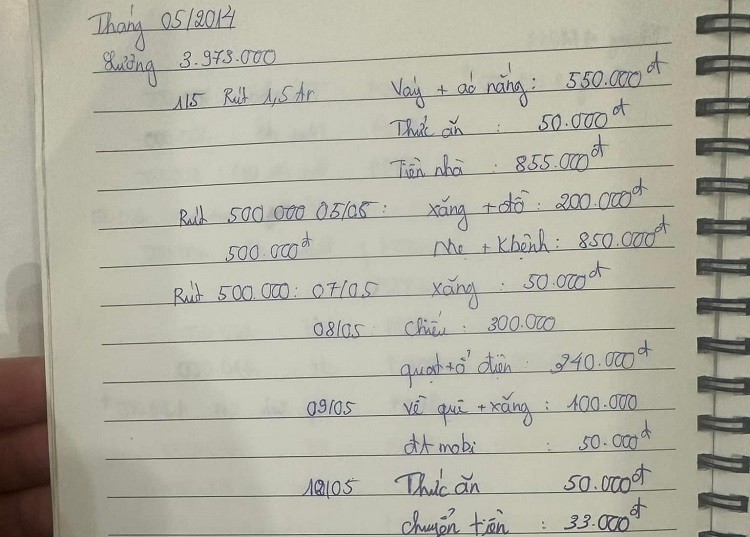 Tháng 05/2014
Lương 3.973.000
1/5 Rút 1,5 tr Váy + áo nắng: 550.000đ
Thức ăn : 50.000đ
Tiền nhà : 855.000đ
Rút 500.000 05/05: xăng + đồ : 200.000đ
500.000đ Mẹ + Kbệnh: 850.000đ
Rút 500.000: 07/05 xăng : 50.000đ
08/05 chiếu : 300.000
quạt + ổ điện : 240.000đ
09/05 về quê + xăng : 100.000
đt mobi : 50.000đ
/05 Thức ăn 50.000đ
chuyển tiền : 33.000đ